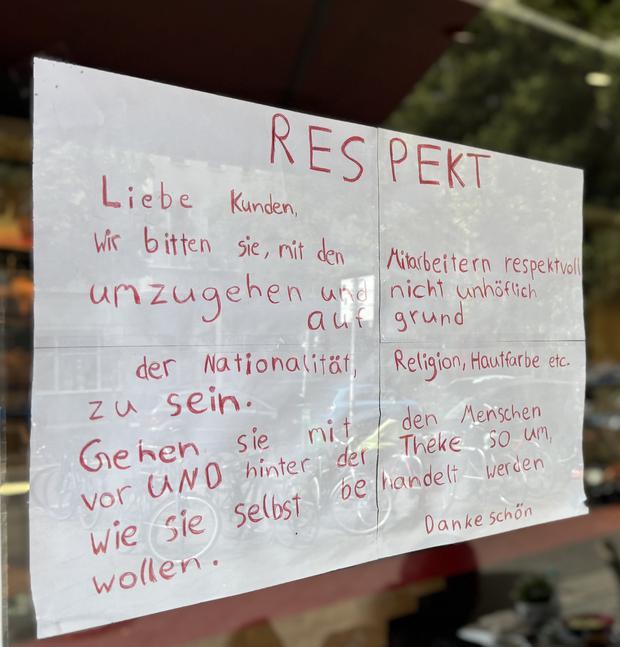 RESPEKT
Liebe Kunden,
wir bitten sie, mit den Mitarbeitern respektvoll
umzugehen und nicht unhöflich
auf grund
der Nationalität, Religion, Hautfarbe etc.
zu sein.
Gehen sie mit den Menschen
vor UND hinter der Theke so um,
wie sie selbst behandelt werden
wollen.
Danke schön